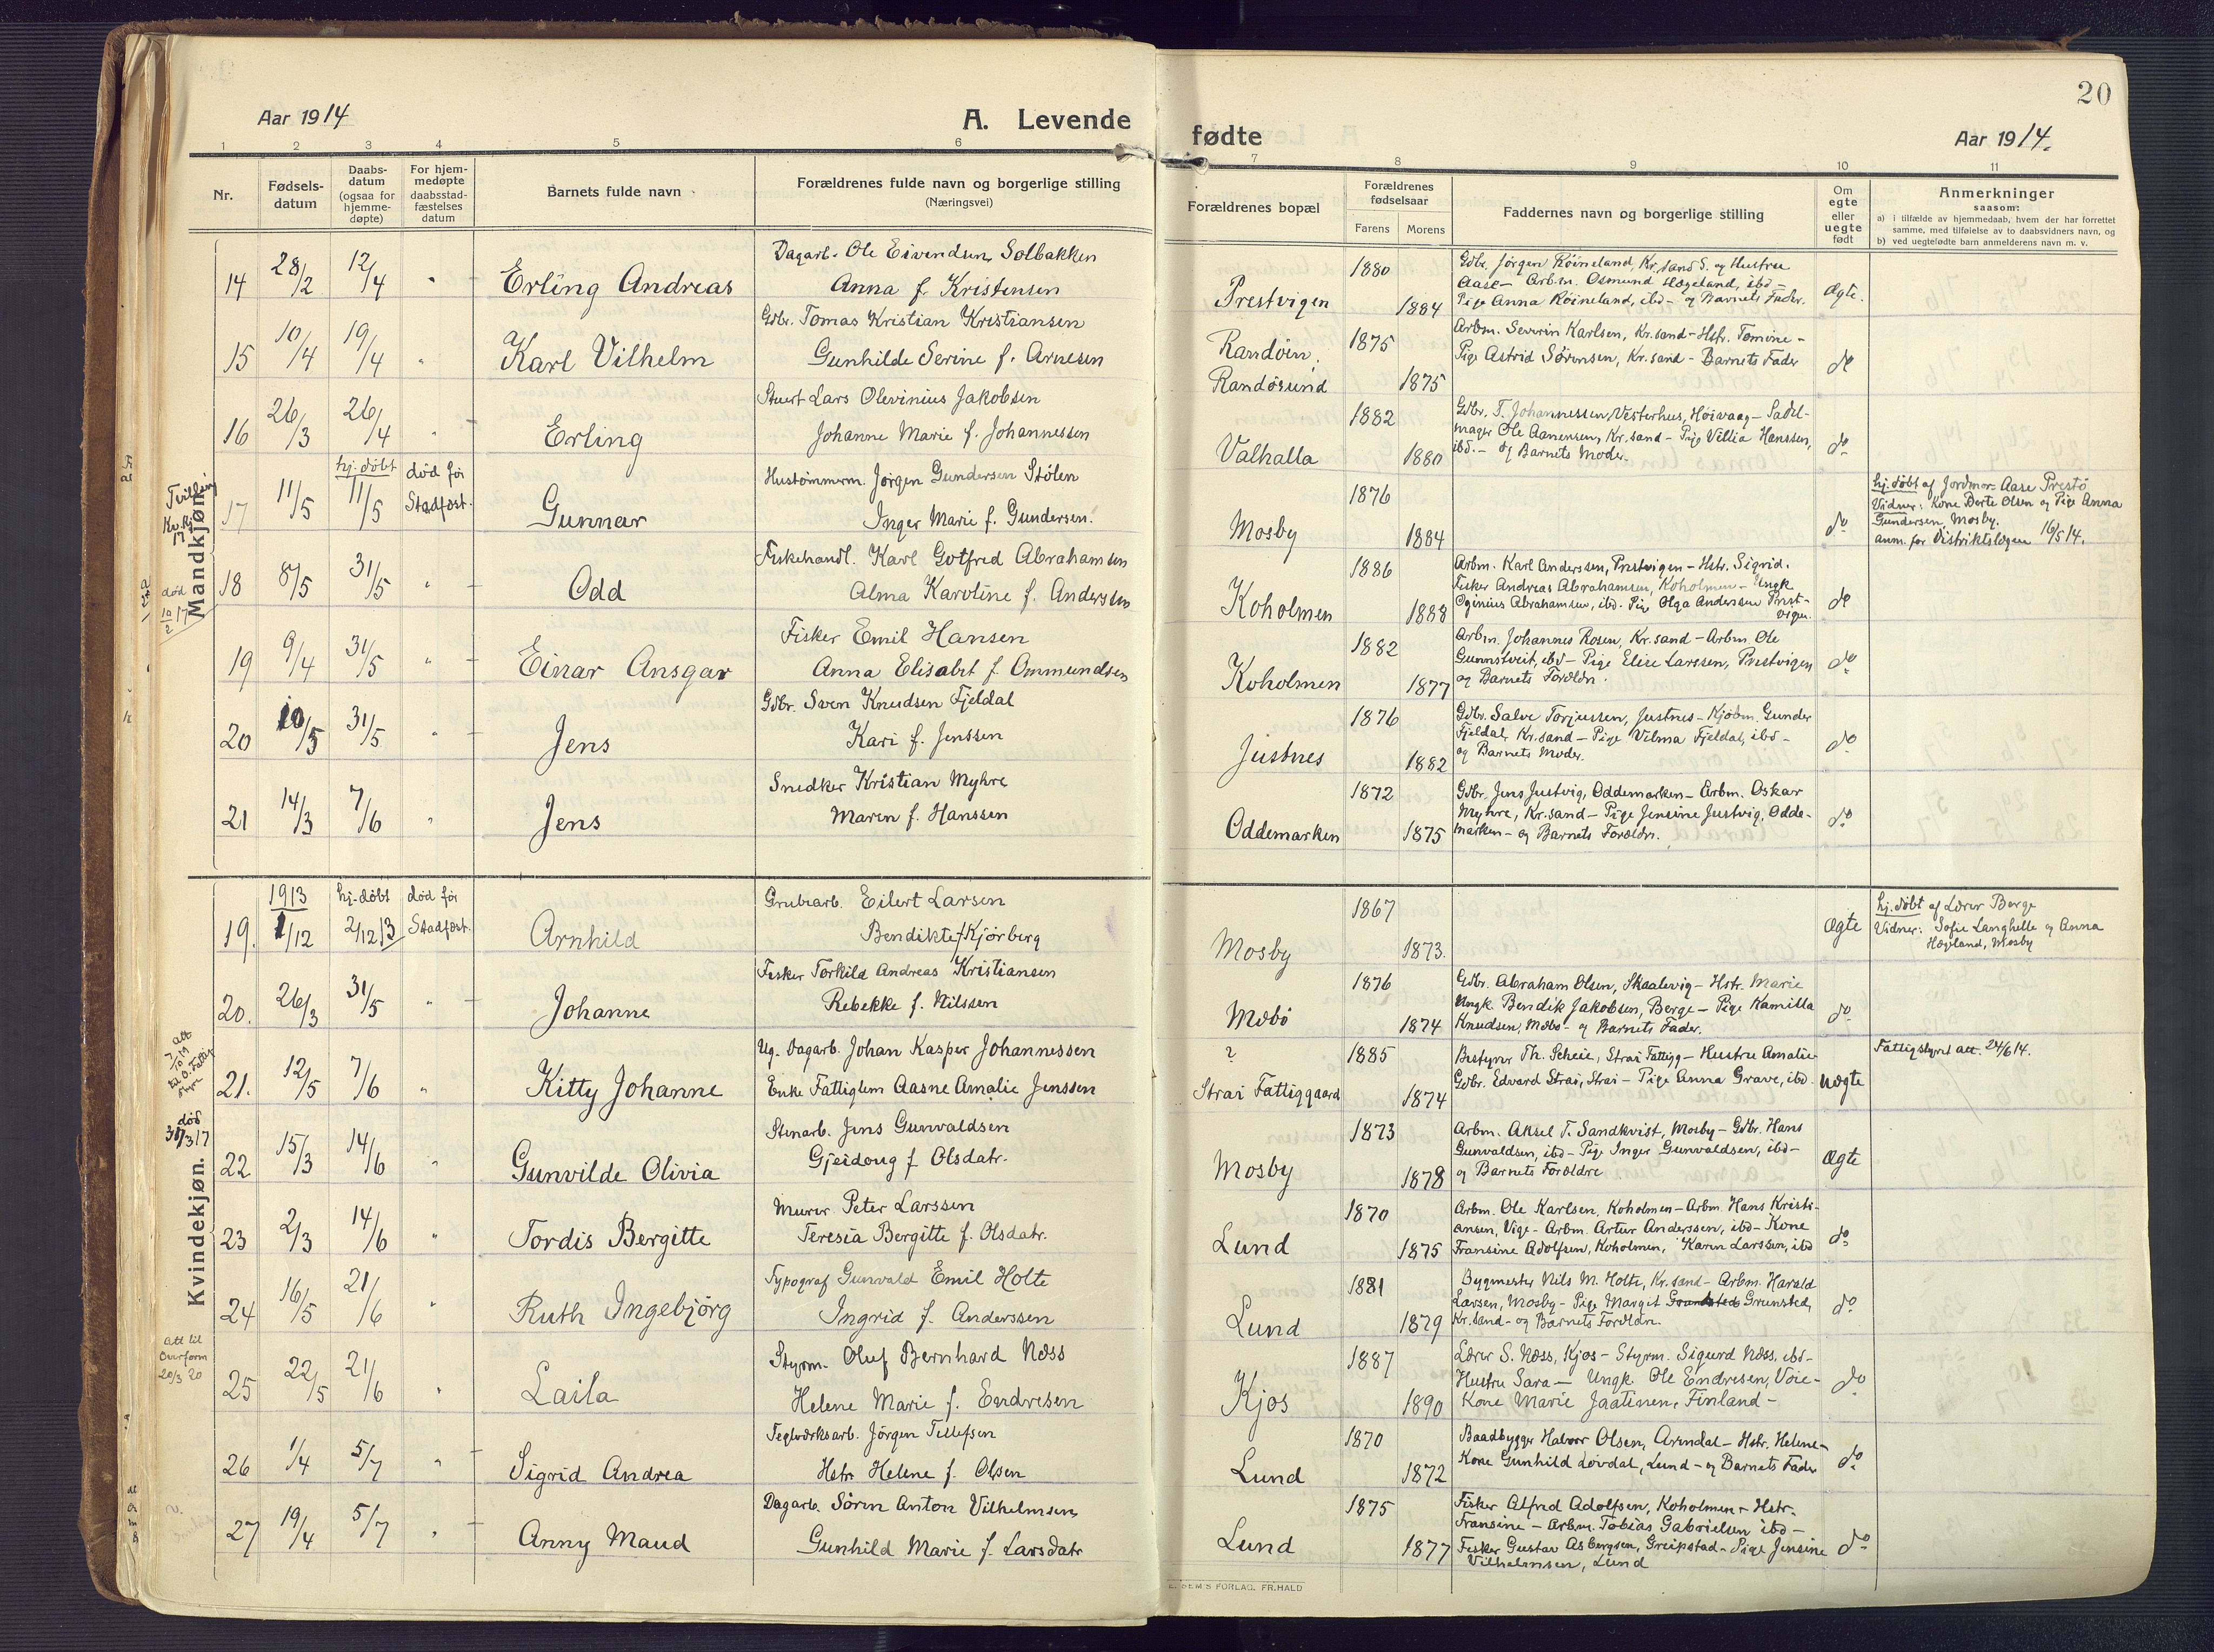 20
Aar 1914
A. Levende
fødte
Aar 1914.
1 2 3 4 5 6 7 8 9 10 11
Nr.
Fødsels-
datum
Daabs-
datum
(ogsaa for
hjemme-
døpte)
For hjem-
medøpte
daabsstad-
fæstelses
datum
Barnets fulde navn
Forældrenes fulde navn og borgerlige stilling
(Næringsvei)
Forældrenes bopæl
Forældrenes
fødselsaar
Farens Morens
Faddernes navn og borgerlige stilling
Om
egte
eller
uegte
født
Anmerkninger
saasom:
a) i tilfælde av hjemmedaab, hvem der har forrettet
samme, med tilføielse av to daabsvidners navn, og
b) ved uegtefødte barn anmelderens navn m. v.
Mandkjøn.
14 28/2 12/4 " Erling Andreas
Dagarb. Ole Eivendsen Solbakken
Anna f. Kristensen
Prestvigen 1880 1884
Gdbr. Jørgen Røineland, Kr.sand S. og Hustru
Aase - Arbm. Osmund Hægeland, ibd -
Pige Anna Røineland, ibd - og Barnets Fader.
Ægte.
15 10/4 19/4 " Karl Vilhelm
Gdbr. Tomas Kristian Kristiansen
Gunhilde Serine f. Arnesen
Randøen.
Randøsund 1875 1875
Arbm. Severin Karlsen, Kr.sand - Hstr. Tomine -
Pige Astrid Sørensen, Kr.sand - Barnets Fader
do
16 26/3 26/4 " Erling
Stuert Lars Olevinius Jakobsen
Johanne Marie f. Johannessen
Valhalla 1882 1880
Gdbr. T. Johannessen, Vesterhus, Høivaag - Sadel-
mager Ole Aanensen, Kr.sand - Pige Villia Hanssen,
ibd. - og Barnets Moder.
do
Tvilling
Kv. kj.
17
17 11/5 hj. døbt 11/5 død før Stadfæst. Gunnar
Hustømmerm. Jørgen Gundersen Stølen
Inger Marie f. Gundersen.
Mosby 1876 1884
do
hj. døbt af Jordmor Aase Prestø
Vidner: Kone Dorte Olsen og Pige Anna
Gundersen, Mosby.
anm. for Distriktslægen 16/5 14.
død
10/2 17
18 8/5 31/5 " Odd
Fiskehandl. Karl Gotfred Abrahamsen
Alma Karoline f. Anderssen
Koholmen 1886 1888
Arbm. Karl Anderssen, Prestvigen - Hstr. Sigrid.
Fisker Andreas Abrahamsen, Koholmen - Ungk.
Oginius Abrahamsen, ibd. Pige Olga Andersen Prest-
vigen.
do
19 9/4 31/5 " Einar Ansgar
Fisker Emil Hansen
Anna Elisabet f. Ommundsen
Koholmen 1882 1877
Arbm. Johannes Rosen, Kr.sand - Arbm. Ole
Gunnstveit, ibd - Pige Elise Larssen, Prestvigen
og Barnets Forældr.
do
20 10/5 31/5 " Jens
Gdbr. Sven Knudsen Fjeldal
Kari f. Jenssen
Justnes 1876 1882
Gdbr. Salve Torjussen, Justnes - Kjøbm. Gunder
Fjeldal, Kr.sand - Pige Vilma Fjeldal, ibd -
og Barnets Moder.
do
21 14/3 7/6 " Jens
Snedker Kristian Myhre
Maren f. Hanssen
Oddemarken 1872 1875
Gdbr. Jens Justvig, Oddemarken - Arbm. Oskar
Myhre, Kr.sand - Pige Jensine Justvig, Odde-
marken - og Barnets Forældr.
do
Kvindekjøn.
19. 1913 1/12 hj. døbt 2/12 13 død før Stadfæst. Arnhild
Grubearb. Eilert Larsen
Bendikte f. Kjørberg
Mosby 1867 1873.
Ægte
hj. døbt af Lærer Berge
Vidner: Sofie Langhelle og Anna
Hægland, Mosby
20. 26/3 31/5 " Johanne
Fisker Torkild Andreas Kristiansen
Rebekke f. Nilssen
Mæbø 1876 1874
Gdbr. Abraham Olsen, Skaalevig - Hstr. Marie
Ungk. Bendik Jakobsen, Berge - Pige Kamilla
Knudsen, Mæbø - og Barnets Fader.
do
21. 12/5 7/6 " Kitty Johanne
Ug. Dagarb. Johan Kasper Johannessen
Enke Fattiglem Aasne Amalie Jenssen
?
Strai Fattiggaard 1885 1874
Bestyrer Th. Scheie, Strai Fattigg - Hustru Amalie
Gdbr. Edvard Strai, Strai - Pige Anna Grave, ibd.
Uægte
Fattigstyret att. 24/6 14.
død
31/3 17
22 15/3 14/6 " Gunvilde Olivia
Stenarb. Jens Gunvaldsen
Gjeidoug f Olsdatr.
Mosby 1873 1878
Arbm. Aksel T. Sandkvist, Mosby - Gdbr. Hans
Gunvaldsen, ibd - Pige Inger Gunvaldsen, ibd -
og Barnets Forældre
Ægte
23 2/3 14/6 " Tordis Bergitte
Murer Peter Larssen
Teresia Bergitte f. Olsdatr.
Lund 1870 1875
Arbm. Ole Karlsen, Koholmen - Arbm. Hans Kristi-
ansen, Vige - Arbm. Artur Anderssen, ibd - Kone
Fransine Adolfsen, Koholmen, Karen Larssen, ibd
do
24 16/5 21/6 " Ruth Ingebjørg
Typograf Gunvald Emil Holte
Ingrid f. Anderssen
Lund 1881 1879
Bygmester Nils M. Holte, Kr.sand - Arbm. Harald
Larsen, Mosby - Pige Margit Grunsted,
Kr.sand - og Barnets Forældr.
do
Att til
Overform
20/3 20
25 22/5 21/6 " Laila
Styrm. Oluf Bernhard Næss
Helene Marie f. Endresen
Kjos 1887 1890
Lærer S. Næss, Kjos - Styrm. Sigurd Næss, ibd -
Hustru Sara - Ungk. Ole Endresen, Voie -
Kone Marie Jaatinen, Finland -
do
26 1/4 5/7 " Sigrid Andrea
Teglværksarb. Jørgen Tellefsen
Hstr Helene f. Olsen
Lund 1870 1872
Baadbygger Halvor Olsen, Arendal - Hstr. Helene -
Kone Gunhild Løvdal, Lund - og Barnets Fader
do
27 19/4 5/7 " Anny Maud
Dagarb. Søren Anton Vilhelmsen
Gunhild Marie f. Larsdatr
Lund 1875 1877
Fisker Alfred Adolfsen, Koholmen - Hstr.
Fransine - Arbm. Tobias Gabrielsen ibd -
Fisker Gustav Asbergsen, Greipstad - Pige Jensine
Vilhelmsen, Lund
do
SEM'S FORLAG. FR.HALD